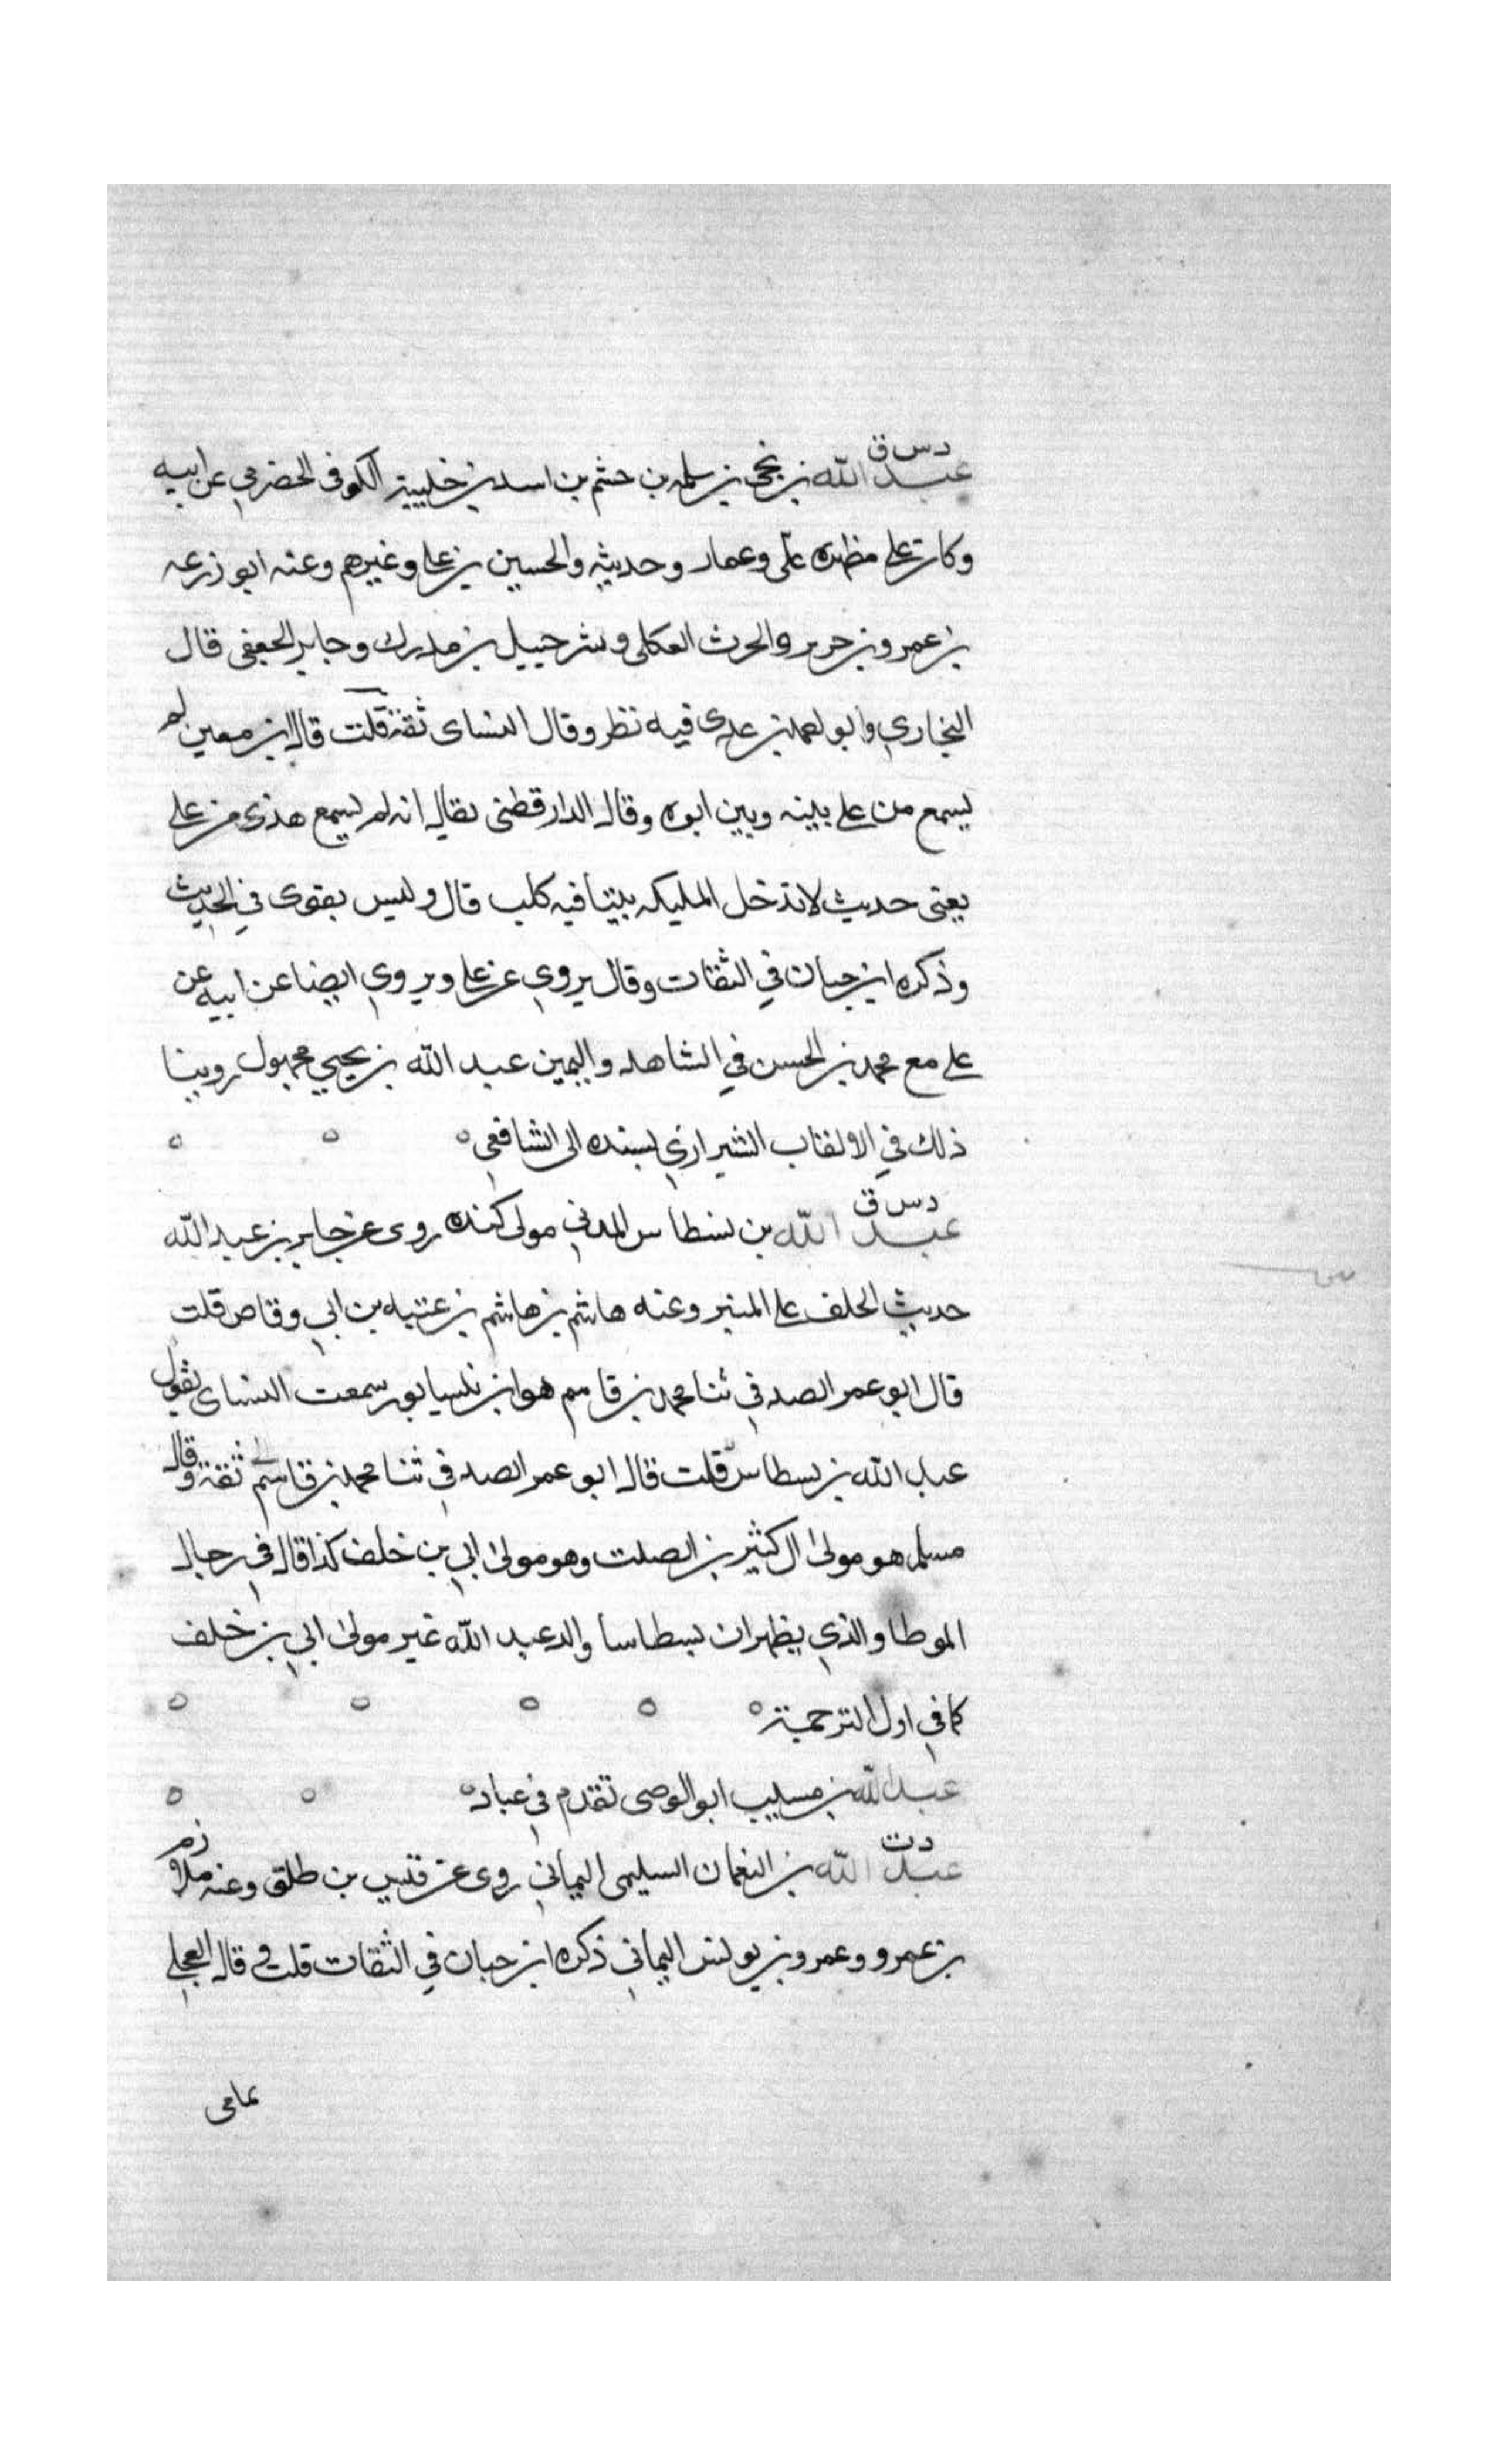 د س ق
عبد الله بن نجي بن سلمه بن حشم بن اسد بن خليبة الكوفي الحضرمي عن ابيه
وكان على مطهره علي وعمار وحديثه والحسين بن علي وغيرهم وعنه ابو زرعه
بن عمرو بن جرير والحرث العكلي وشرحبيل بن مدرك وجابر الجعفي قال
البخاري وابو احمد بن عدي فيه نظر وقال النساى ثقة قلت قال ابن معين لم
يسمع من علي بينه وبين ابوه وقال الدارقطني يقال انه لم يسمع هذى من علي
يعني حديث لا تدخل المليكه بيتا فيه كلب قال وليس بقوى في الحديث
وذكره ابن حبان في الثقات وقال يروي عن علي ويروي ايضا عن ابيه عن
علي مع محمد بن الحسن في الشاهد واليمين عبد الله بن يحيي مجهول روينا
ذلك في الالقاب الشيرازي بسنده الى الشافعي ه ه ه
د س ق
عبد الله بن نسطاس المدني مولى كنده روى عن جابر بن عبد الله
حديث الحلف على المنبر وعنه هاشم بن هاشم بن عتبه بن ابي وقاص قلت
قال ابو عمر الصدفي ثنا محمد بن قاسم هو ابن نلسيابور سمعت النساى يقول
عبد الله بن بسطاس قلت قال ابو عمر الصدفي ثنا محمد بن قاسم ثقة وقال
مسلم هو مولى ال كثير بن الصلت وهو مولى ابي بن خلف كذا قال في رجال
الموطا والذي يظهر ان بسطاسا والد عبد الله غير مولى ابي بن خلف
كما في اول الترجمة ه ه ه ه ه
عبد الله بن مسيب ابو الوصى تقدم في عباد ه ه ه
د ت
عبد الله بن النعمان السليمى اليماني روى عن قيس بن طلق وعنه ملازم
بن عمرو وعمرو بن يونس اليماني ذكره ابن حبان في الثقات قلت وقال العجلي